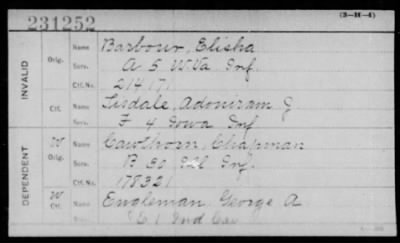 231252
(3-H-4)
INVALID
Orig.
Name Barbour, Elisha
Serv. A 5 W.Va Inf.
Ctf. No. 214171
Ctf.
Name Tisdale, Adoniram J.
Serv. F 4 Iowa Inf
DEPENDENT
W Orig.
Name Cawthorn, Chapman
Serv. B 30 Ill Inf.
Ctf. No. 178321
W Ctf.
Name Engleman, George A
Serv. E 1 Ind Cav